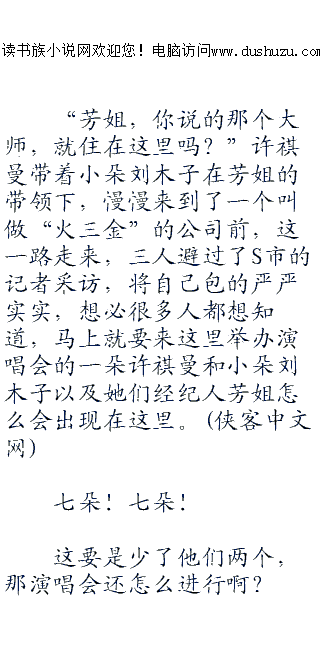 读书族小说网欢迎您！电脑访问www.dushuzu.com
“芳姐，你说的那个大
师，就住在这里吗？”许祺
曼带着小朵刘木子在芳姐的
带领下，慢慢来到了一个叫
做“火三金”的公司前，这
一路走来，三人避过了S市的
记者采访，将自己包的严严
实实，想必很多人都想知
道，马上就要来这里举办演
唱会的一朵许祺曼和小朵刘
木子以及她们经纪人芳姐怎
么会出现在这里。(侠客中文
网)
七朵！七朵！
这要是少了他们两个，
那演唱会还怎么进行啊？